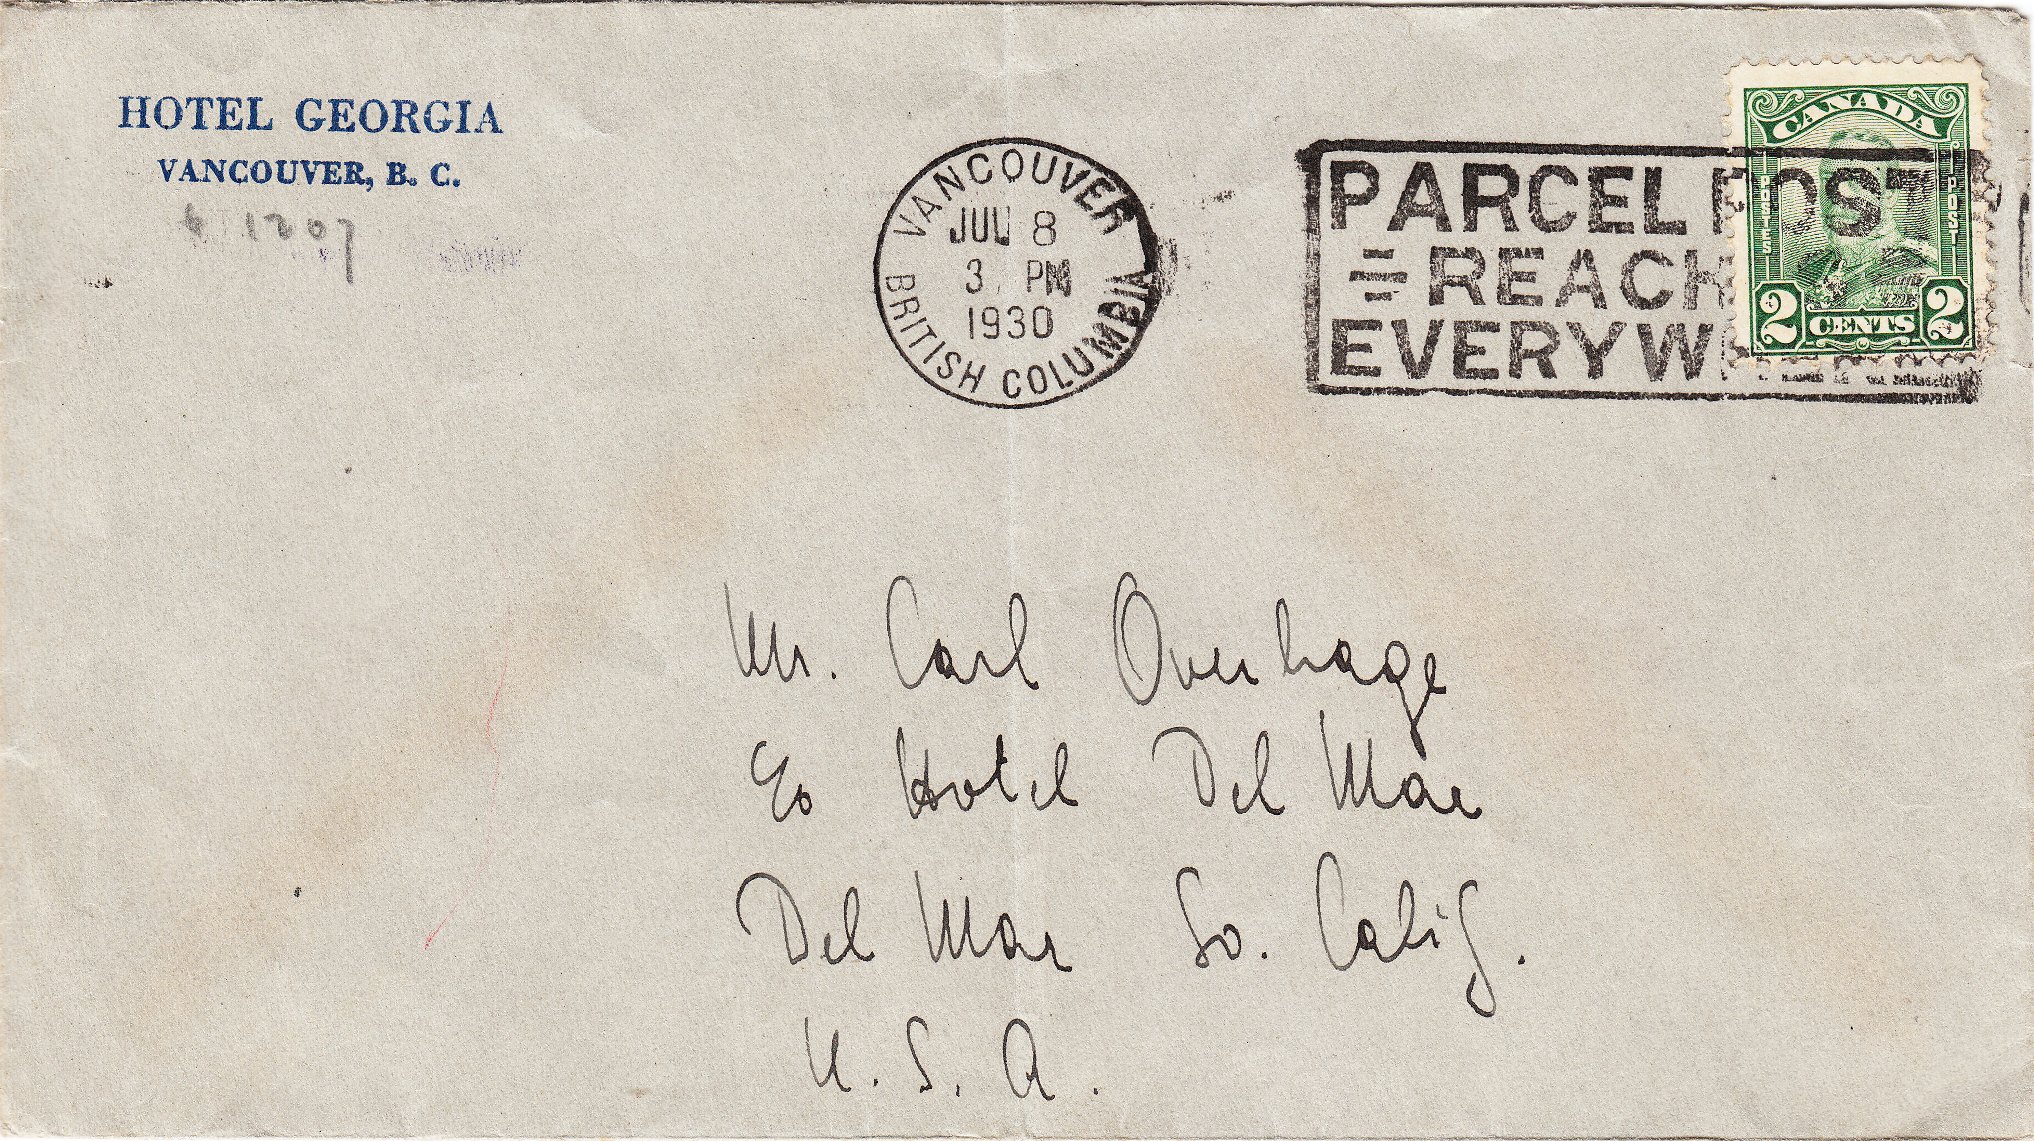 HOTEL GEORGIA
VANCOUVER, B. C.
1207
VANCOUVER
JUL 8
3 PM
1930
BRITISH COLUMBIA
PARCEL POST
REACH
EVERYW
CANADA
POSTES POST
2 CENTS 2
Mr. Carl Overhage
c/o Hotel Del Mar
Del Mar So. Calif.
U. S. A.